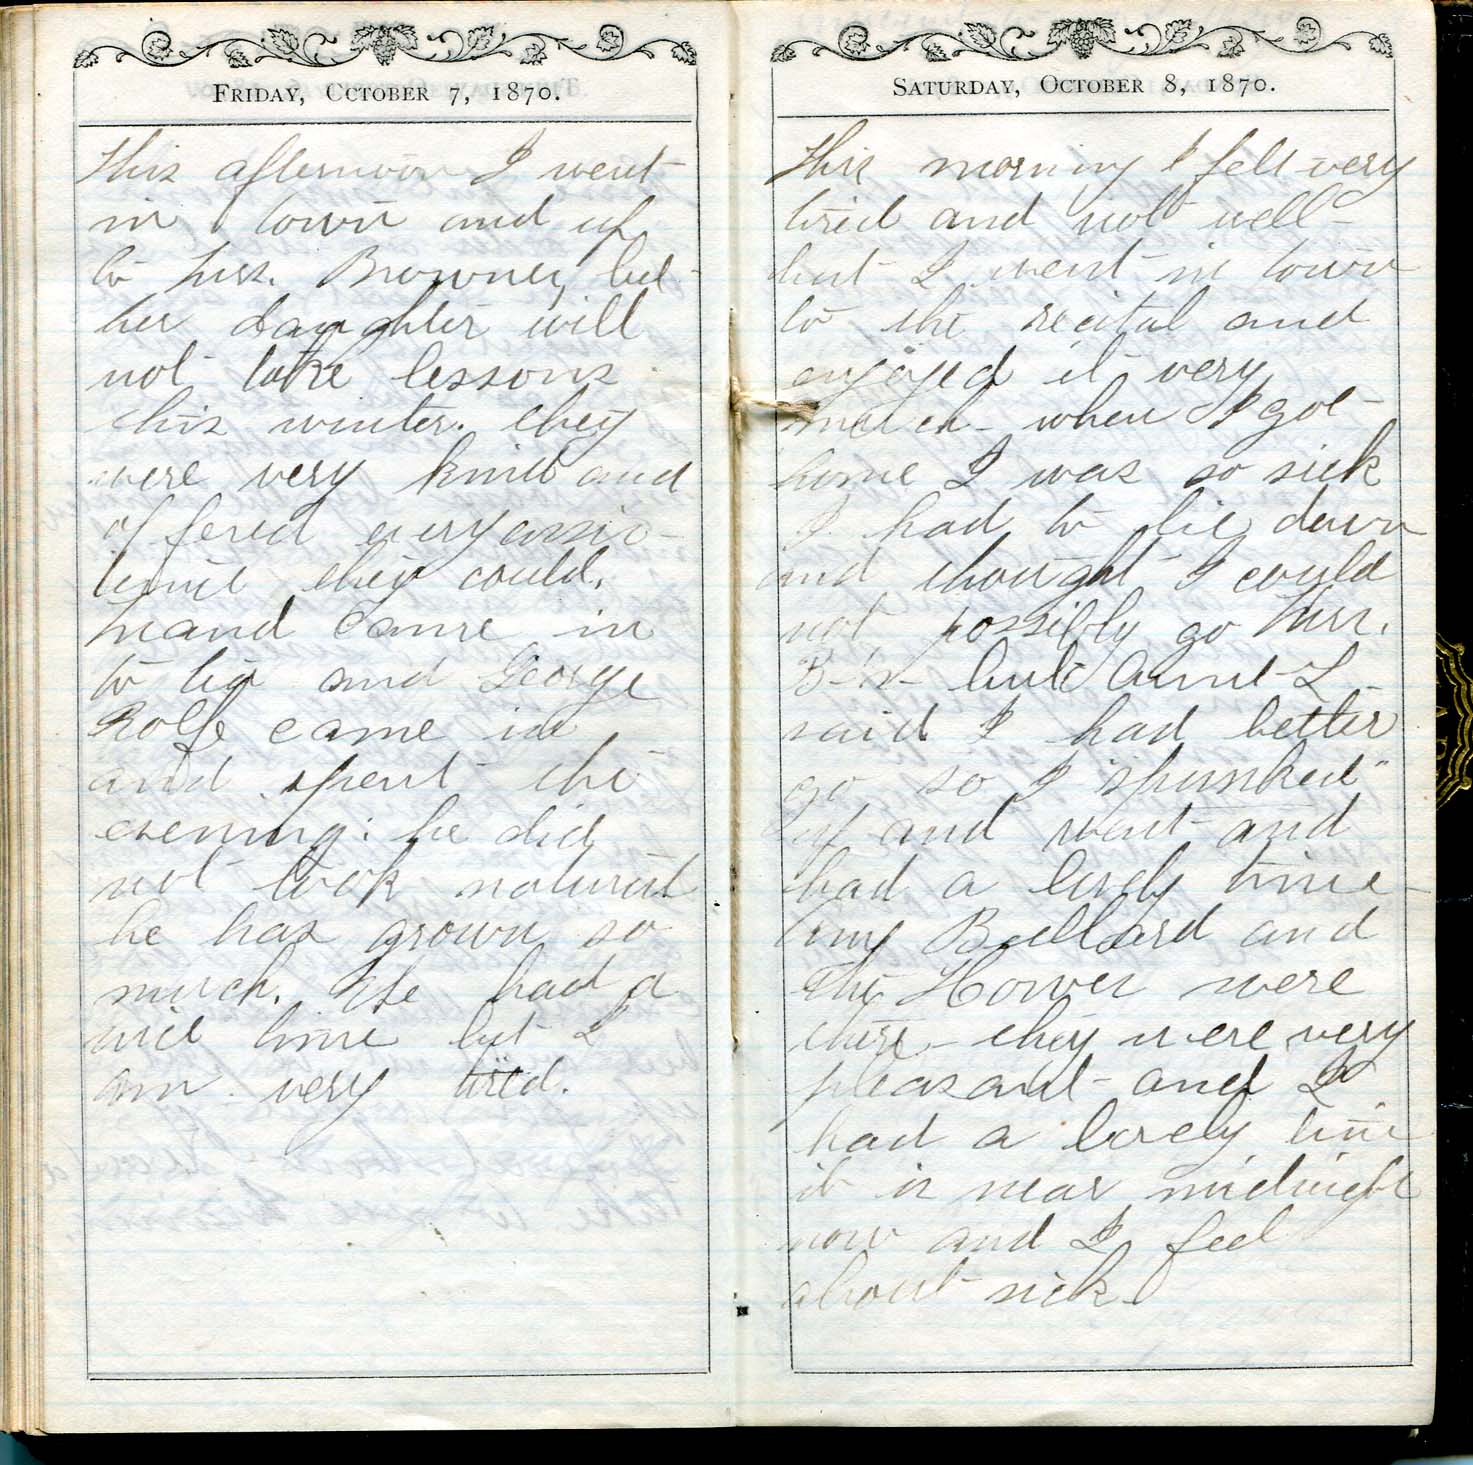 FRIDAY, OCTOBER 7, 1870.
This afternoon I went
in town and up
to Mrs. Browns, but
her daughter will
not take lessons
this winter. they
were very kind and
offered every assis-
tance they could.
Maud came in
to tea and George
Rolfe came in
and spent the
evening: he did
not look natural
he has grown so
much. We had a
nice time but I
am very tired.
SATURDAY, OCTOBER 8, 1870.
This morning I felt very
tired and not well-
but I went in town
to the recital and
enjoyed it very
much - when I got
home I was so sick
I had to lie down
and thought I could
not possibly go Mrs.
but Aunt L
said I had better
go so I "spunked"
up and went and
had a lovely time -
Bullard and
the were
there - they were very
pleasant - and I
had a lovely time
it is near midnight
now and I feel
about sick.